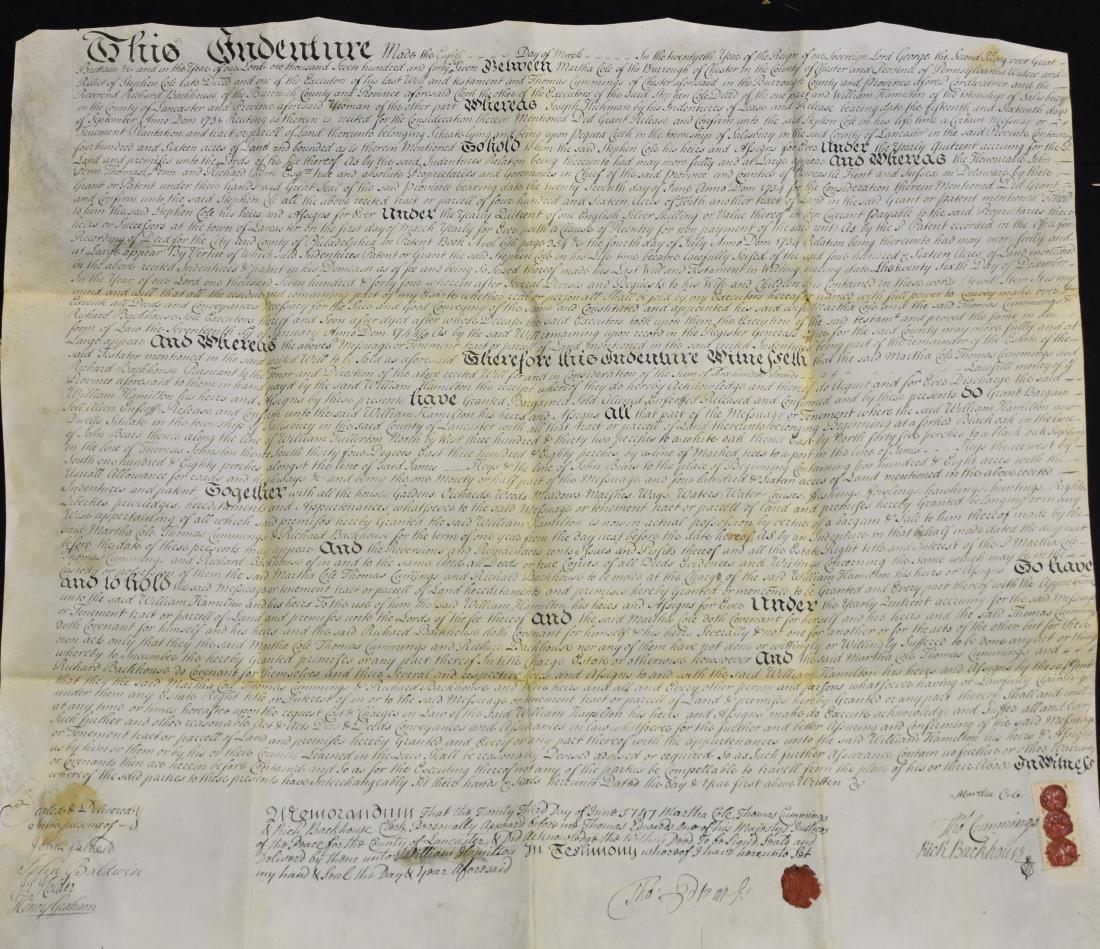 This Indenture Made the Eighth Day of March In the twentieth Year of the Reign of our Sovereign Lord George the Second King over Great
Britain &c and in the Year of our Lord one thousand Seven hundred and forty Seven Between Martha Cole of the Burrough of Chester In the County of Chester and Province of Pennsylvania Widow and
Relict of Stephen Cole late Decd and one of the Executors of his last Will and testament and Thomas Cummings of Chester afore Said in the Burrough County and province afore Said and the
Reverend Richard Backhouse of the Burrough County and Province aforesaid Clerk the other of the Executors of the Said Stephen Cole Decd of the one part and William Hamilton of the township of Salsbury
in the County of Lancaster and Province aforesaid Yeoman of the other part Whereas Joseph Hickman by his Indentures of Lease and Release bearing date the fifteenth and Sixteenth days
of September Anno Dom Reciting as therein is recited for the Consideration therein Mentioned Did Grant Release and Confirm unto the said Stephen Cole in his life time a Certain Messuage or
Tenement Plantation and tract or parcell of Land thereunto belonging Situate lying and being upon Pequea Creek in the township of Salsbury in the said County of Lancaster in the said Province Containing
four hundred and Sixteen acres of Land and bounded as is therein Mentioned To hold to him the said Stephen Cole his heirs and Assigns for Ever Under the Yearly Quitrent accruing for the Sd
Land and premises unto the Lords of the fee thereof As by the said Indentures Relation being thereunto had may more fully and at Large appear And Whereas the Honourable John
Penn Thomas Penn and Richard Penn Esqrs true and absolute Proprietaries and Governours in Chief of the said Province and Counties of Newcastle Kent and Sussex on Delaware by their
Grant or Patent under their hand and Great Seal of the said Province bearing date the twenty Seventh day of June Anno Dom 1734 for the Consideration therein Mentioned Did Grant
and Confirm unto the said Stephen Cole all the above recited tract or parcell of four hundred and Sixteen acres of with another tract of Land in the said Grant or Patent mentioned To hold
to him the said Stephen Cole his heirs and Assigns for Ever Under the Yearly Quitrent of one English Silver Shilling or Value thereof in Coin Currant payable to the said Proprietaries their
heirs or Successors at the town of Lancaster In the first day of March Yearly for Ever with a Clause of Reentry for non payment of the said rents As by the Sd Patent recorded in the office for
Recording of Deeds for the City and County of Philadelphia in Patent Book A Vol 6th page 354 &c the fourth day of July Anno Dom 1734 Relation being thereunto had may more fully and
at Large appear By Vertue of which said Indentures Patent or Grant the said Stephen Cole in his Life time became lawfully Seized of the said four hundred & Sixteen Acres of Land mentioned
in the above recited Indentures & patent in his Demeasn as of fee and being So Seized thereof made his Last Will and Testament in Writing bearing date the twenty Sixth Day of December
In the Year of our Lord one thousand Seven hundred & forty four wherein after Several Devises and Bequests to his Wife and Children is Contained in these words Item it is my
mind and Will that all the residue and remaining part of my Estate whether real or personall Shall be sold by my Executors hereafter named with full power to Convey and
Execute all Deeds and Conveyances Necessary for the Sale and Good Conveying of the Same and Constituted and appointed his said wife Martha Cole Thomas Cummings &
Richard Backhouse his Executors thereof and Soon after dyed after whose Decease the said Executors took upon them the Execution of the said Testamt and proved the same in due
form of Law the Seventeenth day of January Anno Dom As by the said Will remaining upon record in the Register Generals Office
Large appear And Whereas the above Messuage or Tenement tract or parcell of Land mentioned in the said recited Indentures part of the remainder of the Estate of the
said Testator mentioned in the said recited Will to be Sold as aforesaid Therefore this Indenture Witnesseth that the said Martha Cole Thomas Cummings and
Richard Backhouse Pursuant to the Tenor and Direction of the above recited Will for and in Consideration of the Sum of three hundred Pounds Lawfull money of ye
Province aforesaid to them in hand paid by the said William Hamilton the receipt whereof they do hereby Acknowledge and thereof do Acquit and for Ever Discharge the said
William Hamilton his heirs and Assigns by these presents have Granted Bargained Sold Aliened Enfeoffed Released and Confirmed and by these presents Do Grant Bargain
Sell Alien Enfeoff Release and Confirm unto the said William Hamilton his heirs and Assigns All that part of the Messuage or Tenement where the said William Hamilton now
Dwells Situate in the township of Salisbury in the said County of Lancaster with all that tract or parcell of Land thereunto belonging Beginning at a forked Black oak in the line
of John Biars thence along the line of William Fullerton North by West three hundred & thirty two perches to a white oak thence East by North forty five perches to a black oak Saplin
on the line of Thomas Johnston thence South thirty four Degrees East three hundred & Eighty perches by a line of Marked trees to a post in the line of James Keys thence west by
South one hundred & Eighty perches alongst the line of said James Keys & the line of John Biars to the place of Beginning Containing two hundred & Eight acres with the
Usuall Allowance for roads and highways &c and being the one Moiety or half part of the Messuage and four hundred & Sixteen acres of Land mentioned in the above recited
Indentures and patent Together with all the houses Gardens Orchards Woods Meadows Marshes Ways Waters Water Courses Fishings Fowlings Hawkings Huntings Rights
Liberties priviledges hereditaments and Appurtenances whatsoever to the said Messuage or tenement tract or parcell of Land and premises hereby Granted belonging or in any
Wise appertaining of all which said premises hereby Granted the said William Hamilton is now in actual possession by vertue of a bargain & Sale to him thereof made by the
said Martha Cole Thomas Cummings & Richard Backhouse for the term of one year from the day next before the date hereof As by an Indenture in that behalf made dated the day next
before the date of these presents may appear And the Reversions and Remainders rents Issues and Profits thereof and all the Estate Right title and Interest of the Sd Martha Cole
Thomas Cummings and Richard Backhouse of in and to the same And all Deeds or true Copies of all Deeds Evidences and Writings Concerning the Same which may be in the
custody or of them the said Martha Cole Thomas Cummings and Richard Backhouse to be made at the Charge of the said William Hamilton his heirs or Assigns To have
and to hold the said Messuage or tenement tract or parcell of Land hereditaments and premises hereby Granted or mentioned to be Granted and Every part thereof with the Appurtenances
unto the said William Hamilton and his heirs To the use of him the said William Hamilton his heirs and Assigns for Ever Under the Yearly Quitrent accruing for the said Messuage
or Tenement tract or parcell of Land and premises unto the Lords of the fee thereof And the said Martha Cole doth Covenant for herself and her heirs and the said Thomas Cummings
doth Covenant for himself and his heirs and the said Richard Backhouse doth Covenant for himself & his heirs Severally & not one for another or for the acts of the other but for their
own acts only that they the said Martha Cole Thomas Cummings and Richard Backhouse nor any of them have not done or wittingly or Willingly Suffered to be done any act or thing
whereby to Incumber the hereby Granted premises or any part thereof In title Charge Estate or otherwise howsoever And the said Martha Cole Thomas Cummings and
Richard Backhouse do Covenant for themselves and their Several and respective heirs and Assigns to and with the said William Hamilton his heirs and Assigns by these presents
that they the said Martha Cole Thomas Cummings & Richard Backhouse and their heirs and all and Every other person and persons whatsoever having or Lawfully Claiming
under them any Estate or Interest of in or to the said Messuage or tenement tract or parcell of Land & premises hereby Granted or any part thereof Shall and will
at any time or times hereafter upon the request Cost & Charges in Law of the Said William Hamilton his heirs and Assigns make do Execute acknowledge and Suffer all and Every
Such further and other reasonable Act & Acts Deed & Deeds Conveyances and Assurances in Law whatsoever for the further and better Assuring and Confirming of the said Messuage
or Tenement tract or parcell of Land and premises hereby Granted and Every part thereof with the appurtenances unto the said William Hamilton his heirs & Assigns
as by him or them or by his or their Councill Learned in the Law Shall be reasonably Devised advised or required So as Such further Assurance Contain no further or other Warranty
or Covenants then are herein before Contained and So as for the Executing thereof not any of the parties be Compellable to travell from the place of his or their abode In Witness
whereof the said parties to these presents have Interchangeably Set their hands & Seals hereunto Dated the Day & Year first above Written &c
Sealed & Delivered
In the presence of
John
John Baldwin
Henry Graham
Memorandum That the Twenty Third Day of June 1747 Martha Cole Thomas Cummings
& Rich Backhouse Clerk Personally Appeard before me Thomas Edwards One of his Majestys Justices
of the Peace for the County of Lancaster & Did Acknowledge the within Deed to be Signd Seald and
Delivered by them unto William Hamilton In Testimony whereof I have hereunto Set
my hand & Seal the Day & Year Aforesaid
Tho: Edwards
Martha Cole
Tho: Cummings
Rich Backhouse